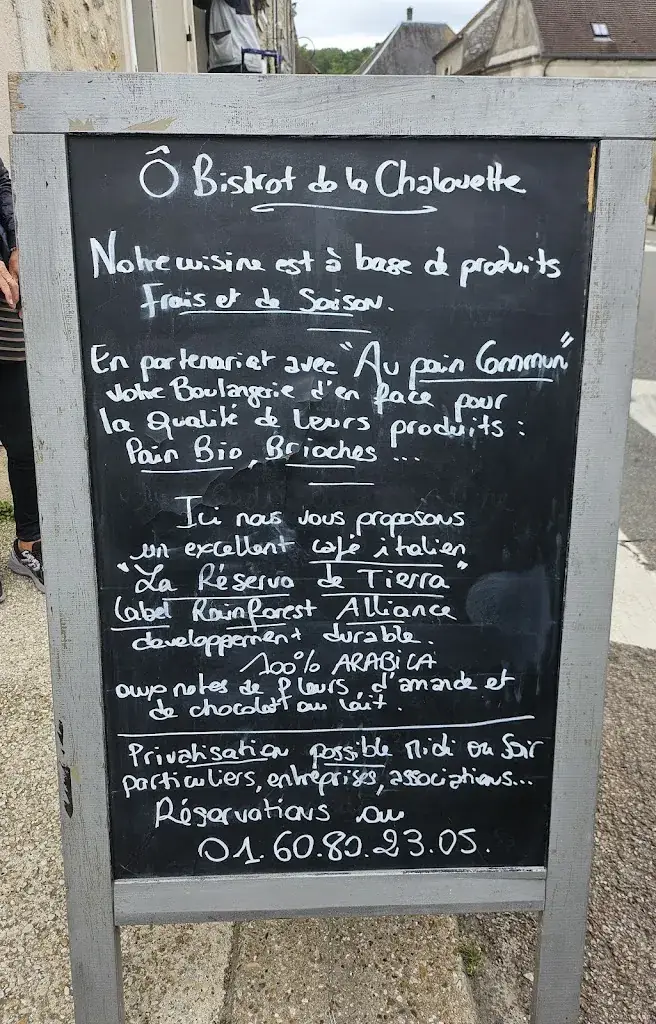 Ô Bistrot de la Chalouette
Notre cuisine est à base de produits
Frais et de Saison.
En partenariat avec "Au pain Commun"
votre Boulangerie d'en face pour
la Qualité de leurs produits :
Pain Bio, Brioches ...
Ici nous vous proposons
un excellent café italien
"La Réserva de Tierra"
Label Rainforest Alliance
développement durable.
100% ARABICA
aux notes de fleurs, d'amande et
de chocolat au lait.
Privatisation possible Midi ou Soir
particuliers, entreprises, associations...
Réservations au
01.60.80.23.05.